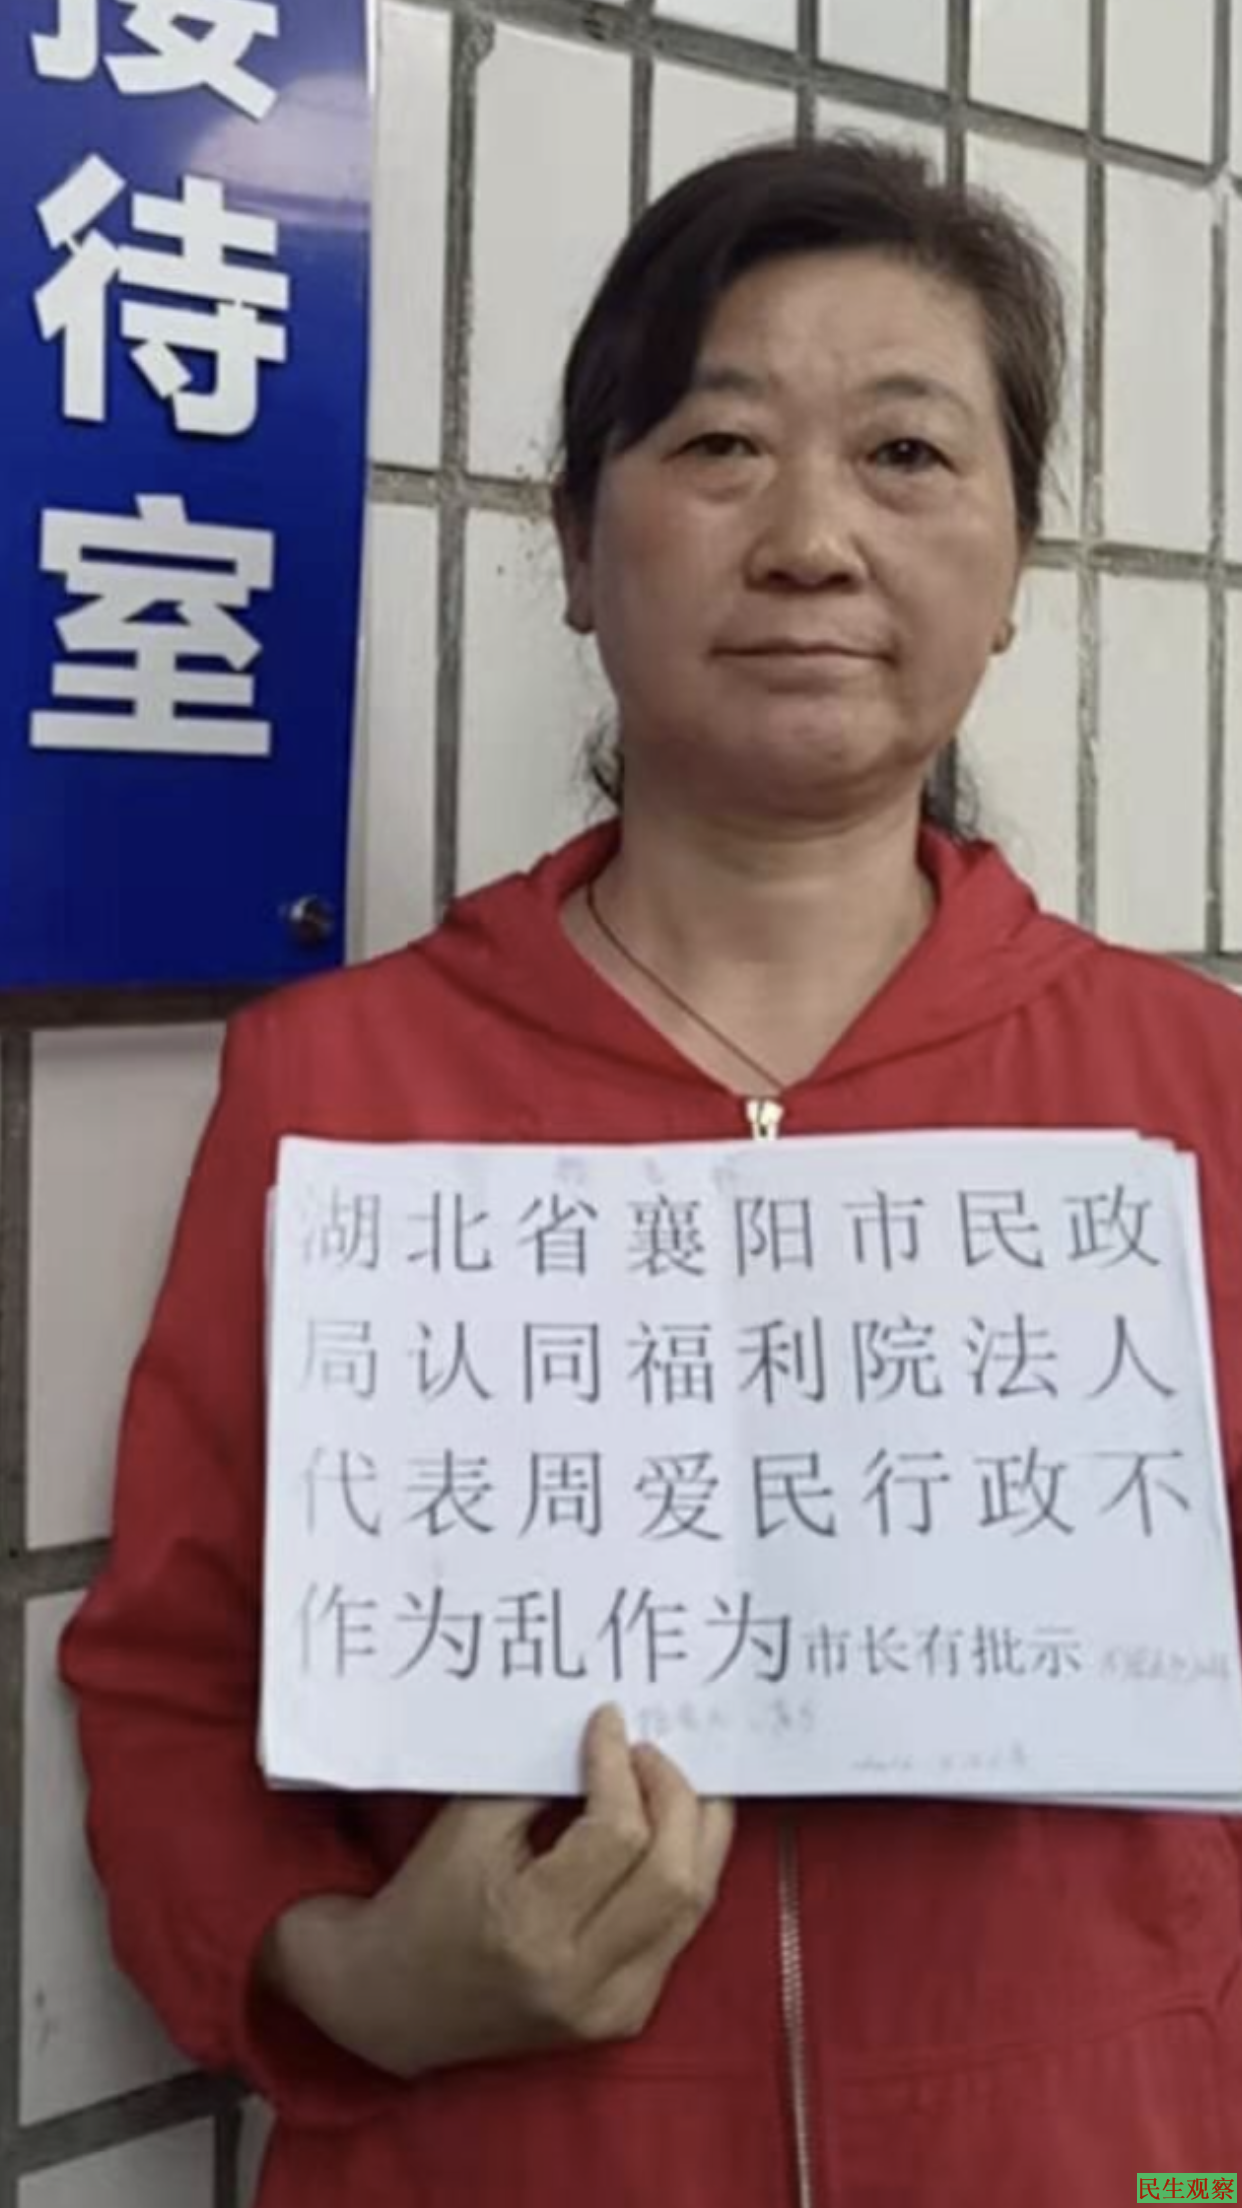 接待室
湖北省襄阳市民政
局认同福利院法人
代表周爱民行政不
作为乱作为市长有批示
民生观察